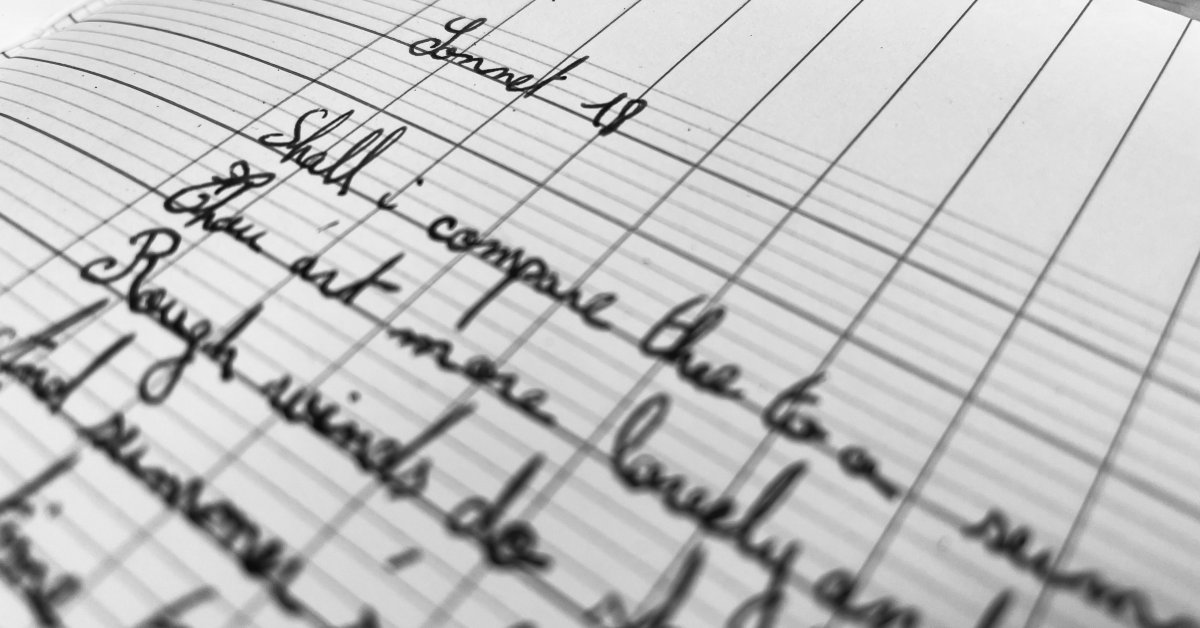 Sonnet 18
Shall i compare thee to a
Thou art more lovely
Rough winds do
And summer